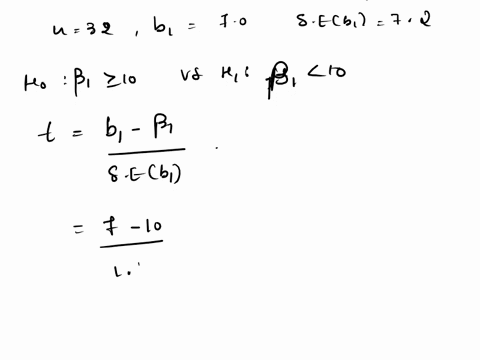 n = 32 , b₁ = 7.0 S.E(b₁) = 7.2
H₀ : β₁ ≥ 10 vs H₁ : β₁ < 10
t = b₁ - β₁
S.E(b₁)
= 7 - 10
1.